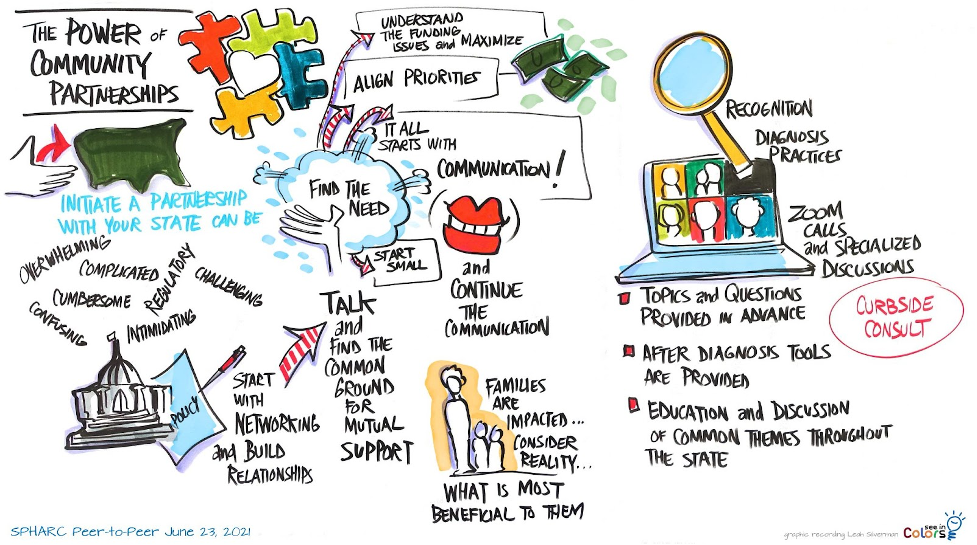 THE POWER OF
COMMUNITY
PARTNERSHIPS
INITIATE A PARTNERSHIP
WITH YOUR STATE CAN BE
OVERWHELMING
COMPLICATED
REGULATORY
CHALLENGING
CUMBERSOME
CONFUSING
INTIMIDATING
POLICY
START
WITH
NETWORKING
and BUILD
RELATIONSHIPS
UNDERSTAND
THE FUNDING
ISSUES and MAXIMIZE
ALIGN PRIORITIES
IT ALL
STARTS WITH
COMMUNICATION!
FIND THE
NEED
START
SMALL
and
CONTINUE
THE
COMMUNICATION
TALK
and
FIND THE
COMMON
GROUND
FOR
MUTUAL
SUPPORT
FAMILIES
ARE
IMPACTED...
CONSIDER
REALITY...
WHAT IS MOST
BENEFICIAL TO THEM
RECOGNITION
DIAGNOSIS
PRACTICES
ZOOM
CALLS
and SPECIALIZED
DISCUSSIONS
TOPICS and QUESTIONS
PROVIDED IN ADVANCE
CURBSIDE
CONSULT
AFTER DIAGNOSIS TOOLS
ARE PROVIDED
EDUCATION and DISCUSSION
OF COMMON THEMES THROUGHOUT
THE STATE
SPHARC Peer-to-Peer June 23, 2021
graphic recording Leah Silverman
see in
Colors